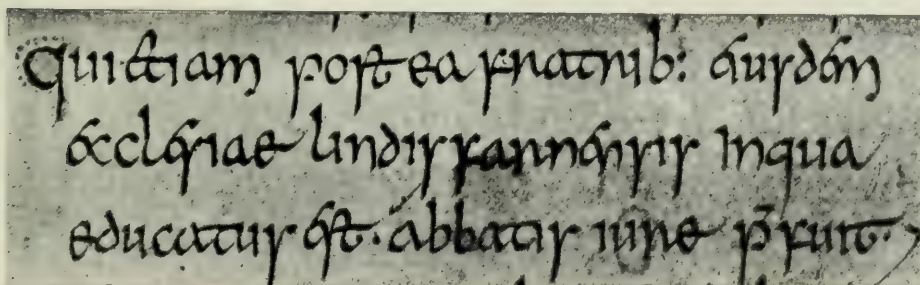 Qui etiam postea fratrib: eiusdem
ecclesiae lindisfarnensis in qua
educatus est. abbatis iure p̄fuit.